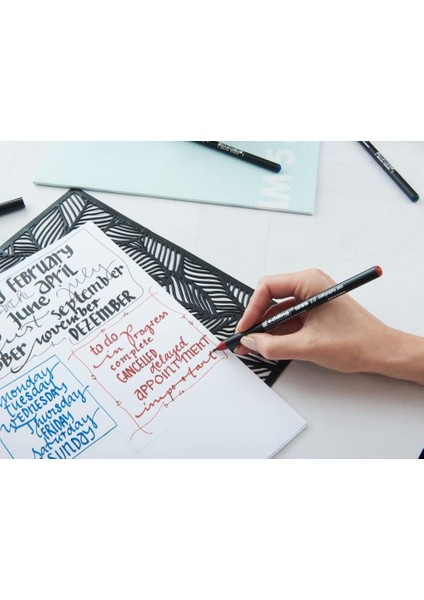 FEBRUARY
June APRIL
July
September
november
DEZEMBER
to do
in progress
complete
CANCELLED
delayed
APPOINTMENT
important
monday
TUESDAY
WEDNESDAY
Thursday
FRIDAY
saturday
SUNDAY